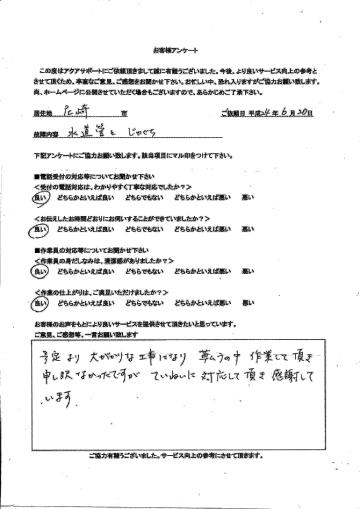 お客様アンケート
この度はアクアサポートにご依頼頂きまして誠に有難うございました。今後、より良いサービス向上の参考と
させて頂くため、率直なご意見、ご感想をお聞かせ下さい。お忙しい中、恐れ入りますがご協力お願い致します。
尚、ホームページに公開させていただく場合もございますので、あらかじめご了承下さい。
居住地 尼崎 市 ご依頼日 平成24年6月20日
故障内容 水道管と じゃぐち
下記アンケートにご協力お願い致します。該当項目にマル印をつけて下さい。
■電話受付の対応等についてお聞かせ下さい
＜受付の電話対応は、わかりやすく丁寧な対応でしたか？＞
良い どちらかといえば良い どちらでもない どちらかといえば悪い 悪い
＜お伝えしたお時間どおりにお伺いすることができていましたか？＞
良い どちらかといえば良い どちらでもない どちらかといえば悪い 悪い
■作業員の対応等についてお聞かせ下さい
＜作業員の身だしなみは、清潔感がありましたか？＞
良い どちらかといえば良い どちらでもない どちらかといえば悪い 悪い
＜作業の仕上がりは、ご満足いただけましたか？＞
良い どちらかといえば良い どちらでもない どちらかといえば悪い 悪い
お客様のお声をもとにより良いサービスを提供させて頂きたいと思っています。
ご意見、ご感想等、一言お願い致します
予定より 大がかりな工事になり 暑い中 作業して頂き
申し訳なかったですが ていねいに 対応して頂き 感謝して
います
ご協力有難うございました。サービス向上の参考にさせて頂きます。